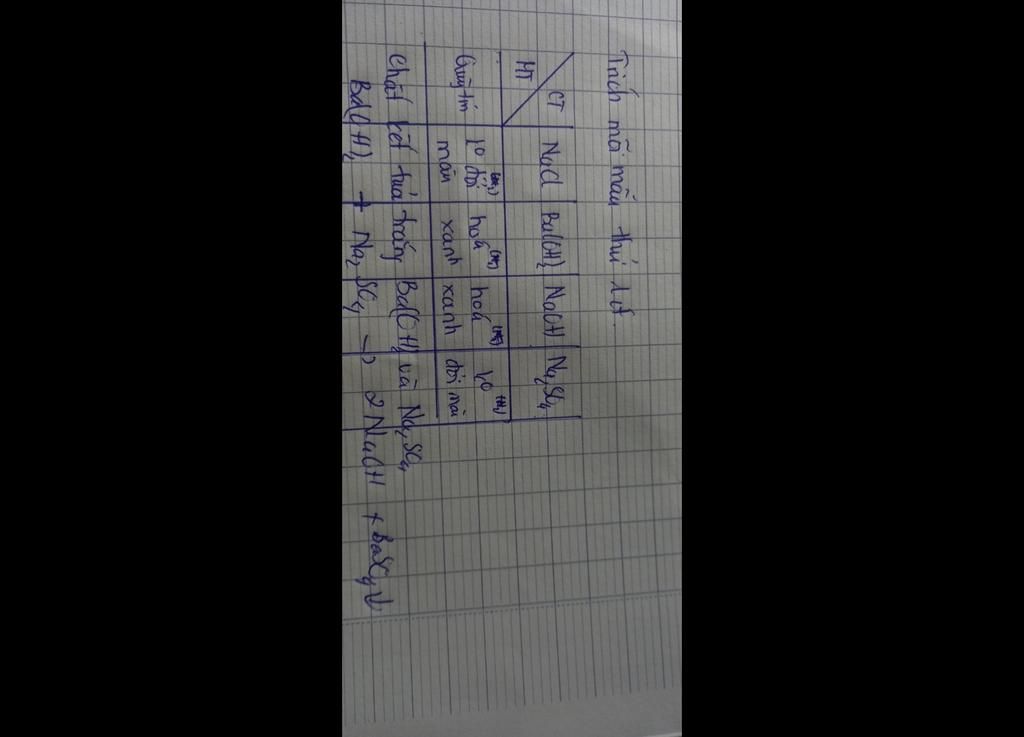 Trích mỗi mẫu thử 1 ít.
CT NaCl Ba(OH)₂ NaOH Na₂SO₄
HT
Quỳ tím ko đổi màu hoá xanh hoá xanh ko đổi màu
Chất kết tủa trắng Ba(OH)₂ và Na₂SO₄
Ba(OH)₂ + Na₂SO₄ → 2NaOH + BaSO₄↓